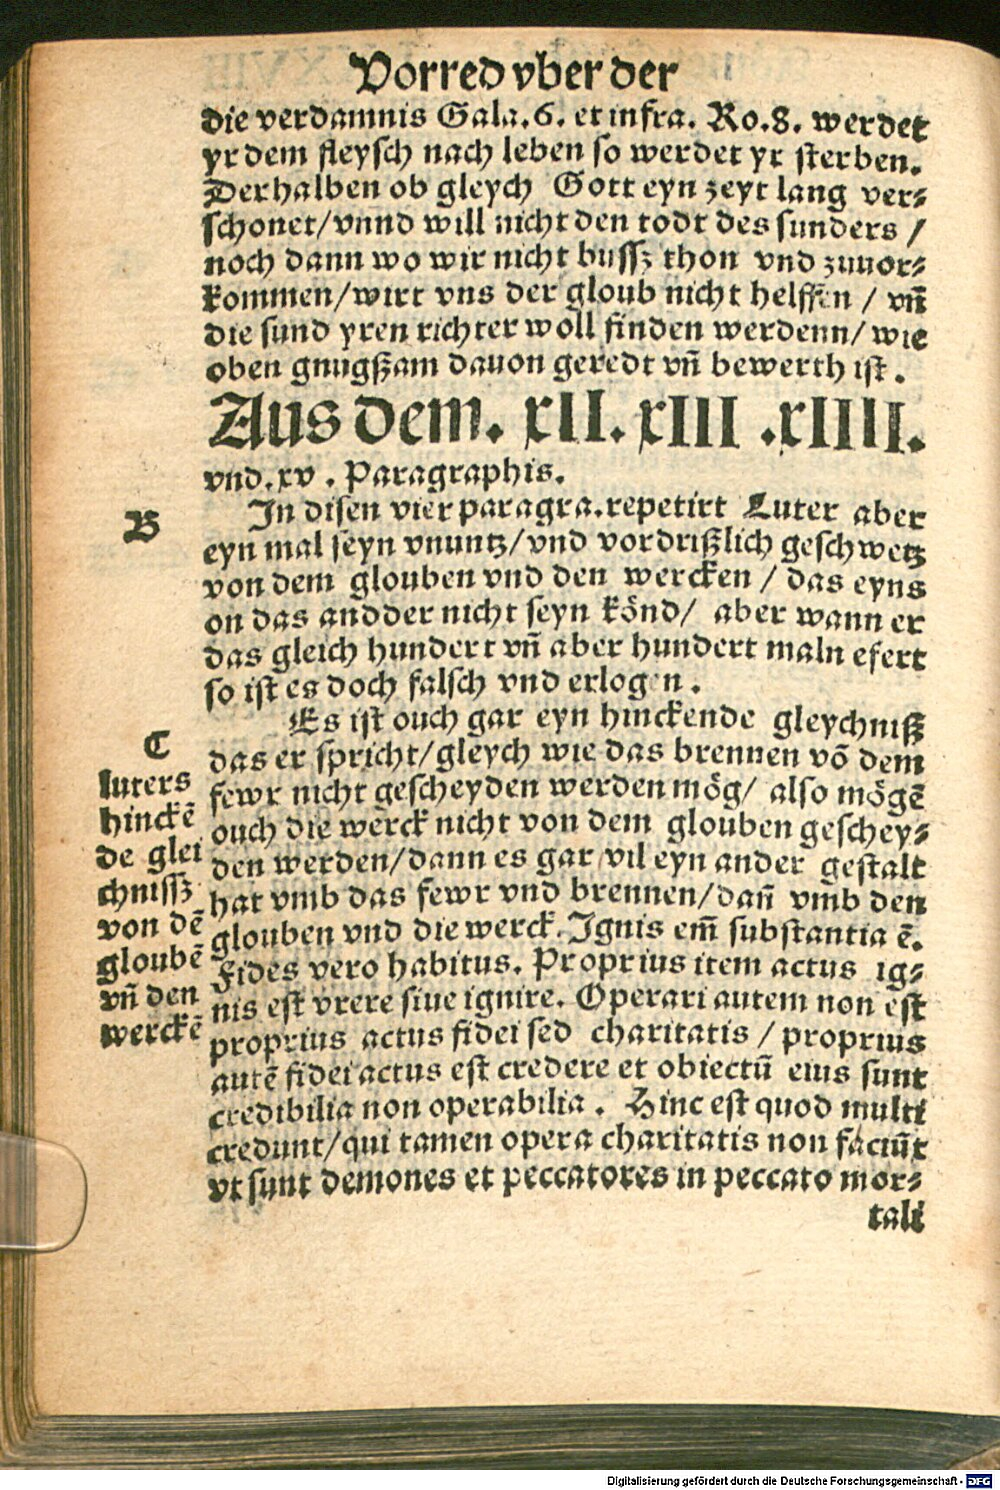 Vorred vber der
die verdamnis Gala.6. et infra. Ro.8. werdet
yr dem fleysch nach leben so werdet yr sterben.
Derhalben ob gleych Gott eyn zeyt lang ver⸗
schonet/vnnd will nicht den todt des sunders /
noch dann wo wir nicht bussz thon vnd zuuor⸗
kommen/wirt vns der gloub nicht helffen / vñ
die sund yren richter woll finden werdenn/ wie
oben gnugßam dauon geredt vñ bewerth ist.
Aus dem. xII. xIII .xIIII.
vnd.xv . Paragraphis.
B
In disen vier paragra.repetirt Luter aber
eyn mal seyn vnuntz/vnd vordrißlich geschwetz
von dem glouben vnd den wercken / das eyns
on das andder nicht seyn könd/ aber wann er
das gleich hundert vñ aber hundert maln efert
so ist es doch falsch vnd erlogen.
Es ist ouch gar eyn hinckende gleychniß
das er spricht/gleych wie das brennen võ dem
fewr nicht gescheyden werden mög/ also mögẽ
ouch die werck nicht von dem glouben geschey⸗
den werden/dann es gar vil eyn ander gestalt
hat vmb das fewr vnd brennen/dañ vmb den
glouben vnd die werck. Ignis em̃ substantia ẽ.
Fides vero habitus. Proprius item actus ig⸗
nis est vrere siue ignire. Operari autem non est
proprius actus fidei sed charitatis / proprius
autẽ fidei actus est credere et obiectũ eius sunt
credibilia non operabilia . Hinc est quod multi
credunt/qui tamen opera charitatis non faciũt
vt sunt demones et peccatores in peccato mor⸗
tali
C
luters
hinckẽ
de glei
chnissz
von dẽ
gloubẽ
vñ den
werckẽ
Digitalisierung gefördert durch die Deutsche Forschungsgemeinschaft - DFG